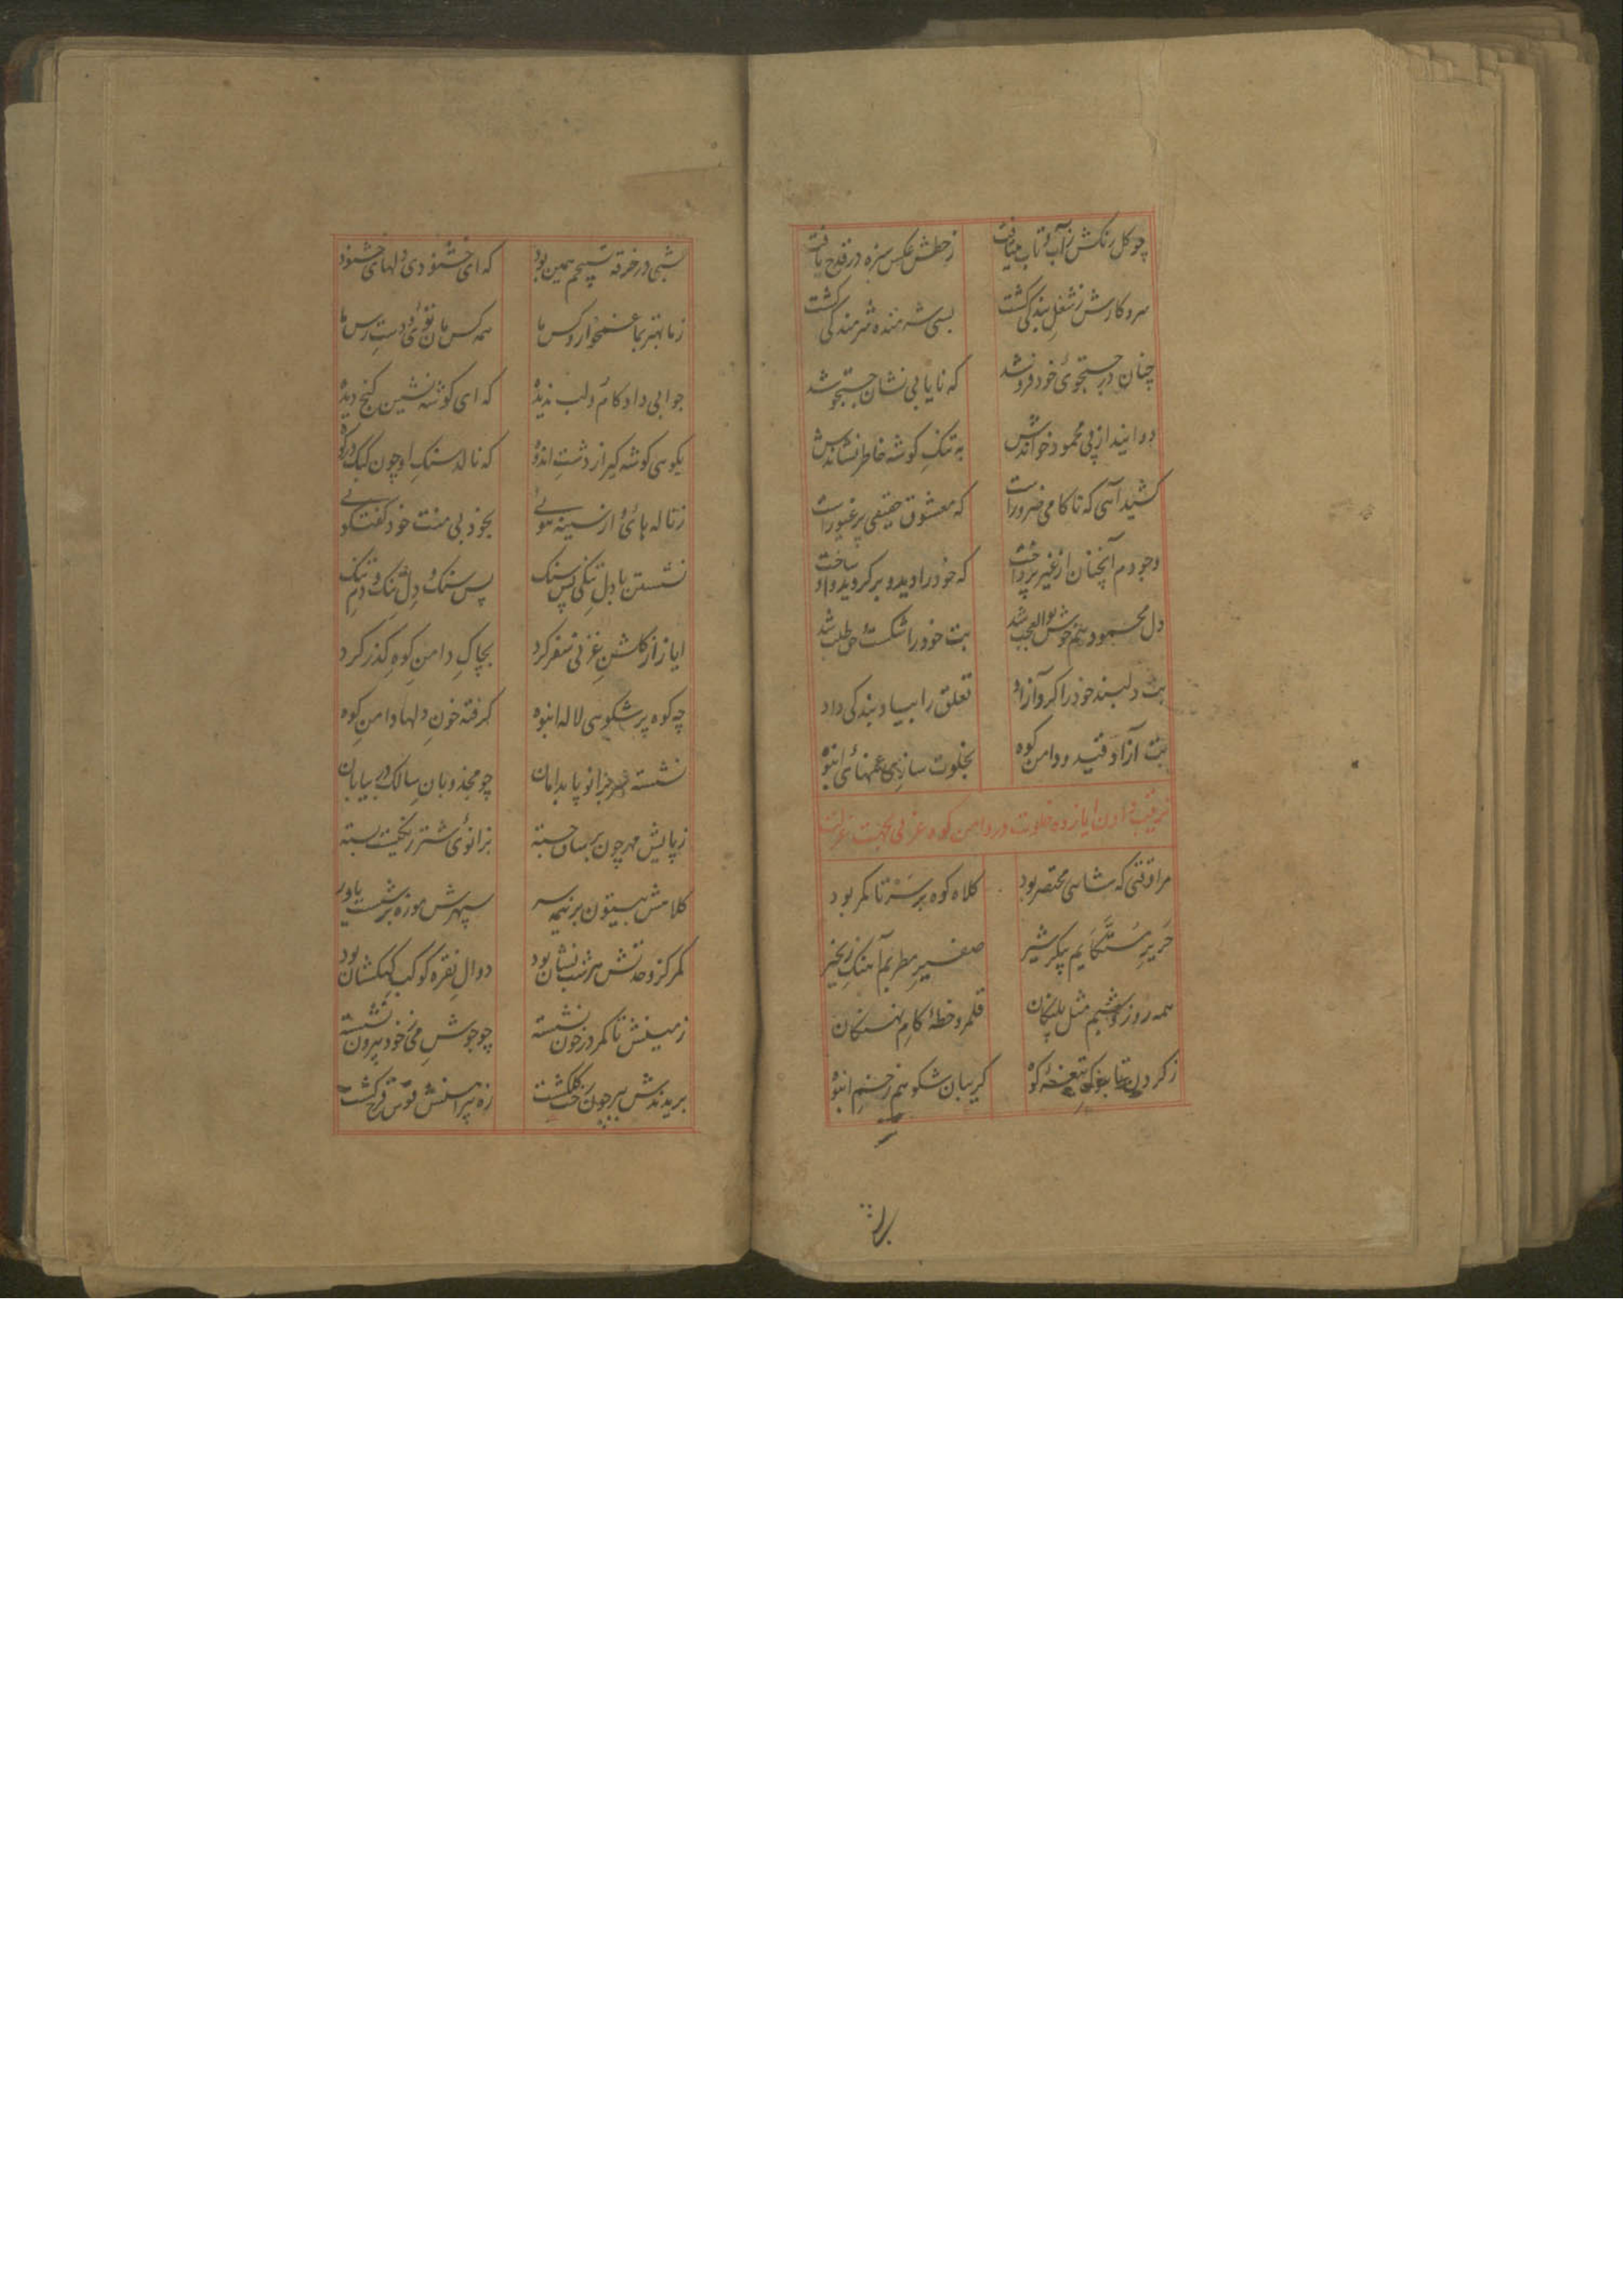 چو کل رنکش ز آب و تاب میتافت ز خطش عکس سبزه در قدح یافت
سر و کارش ز شغل بندکی کشت بسی شرمنده شرمندکی کشت
چنان در جستجوی خود فرو شد که نایابی نشان جستجو شد
دوانید از پی محمود خواندش به تنک کوشه خاطر نشاندش
کشید آهی که ناکامی ضرور است که معشوق حقیقی پر غیور است
وجودم آنچنان از غیر پرداخت که خود را دید و بر کردید و وا ساخت
دل محمود هم خوش بوالعجب شد بت خود را شکست و حق طلب شد
بت دلبند خود را کرد آزاد تعلق را بیاد بندکی داد
بت آزاد قید و دامن کوه بخلوت سازی غمهای انبوه
ترتیب دادن ایاز ده خلوت در دامن کوه غزنی بجهت عزلت
مرا وقتی که شاهی مختصر بود کلاه کوه بر سر تا کمر بود
حریر متکایم پیکر شیر صفیر مطربم آهنک زنجیر
همه روز و شبم مثل پلنکان قلمرو خطه کام نهنکان
ز کردن تا بزیر تیغه کوه کریبان شکوهم زخم انبوه
شبی در خرقه تسبیحم همین بود که ای خشنودی دلهای خشنود
ز ما بهتر بما غمخوار و کس ما همه کس مان توئی و دست رس ما
جوابی داد کام و لب ندیده که ای کوشه نشین کنج دیده
بکوهی کوشه کیر از دشت اندوه که ناله سنک او چون کبک در کوه
ز ناله های و از سینه هوئی بخود بی منت خود کفتکوئی
نشستن با دل تنکی پس سنک پس سنک و دل تنک و دم تنک
ایاز از کلشن غزنی سفر کرد بچاک دامن کوه کذر کرد
چه کوه پر شکوهی لاله انبوه کرفته خون دلها دامن کوه
نشسته بر زانو پا بدامان چو مجذوبان سالک در بیابان
ز پایش مهر چون بر ساق جسته بزانوی شتر زنکیت بسته
کلامش بیستون بر نیمه سر سپهرش موزه بر پشت پا در
کمر کز وحدتش هر شب نشان بود دوال نقره کوکب کهکشان بود
زمینش تا کمر در خون نشسته چو جوش می ز خود بیرون نشسته
بریدندش بپر چون کلکشت زه پیراهنش قوس قزح کشت